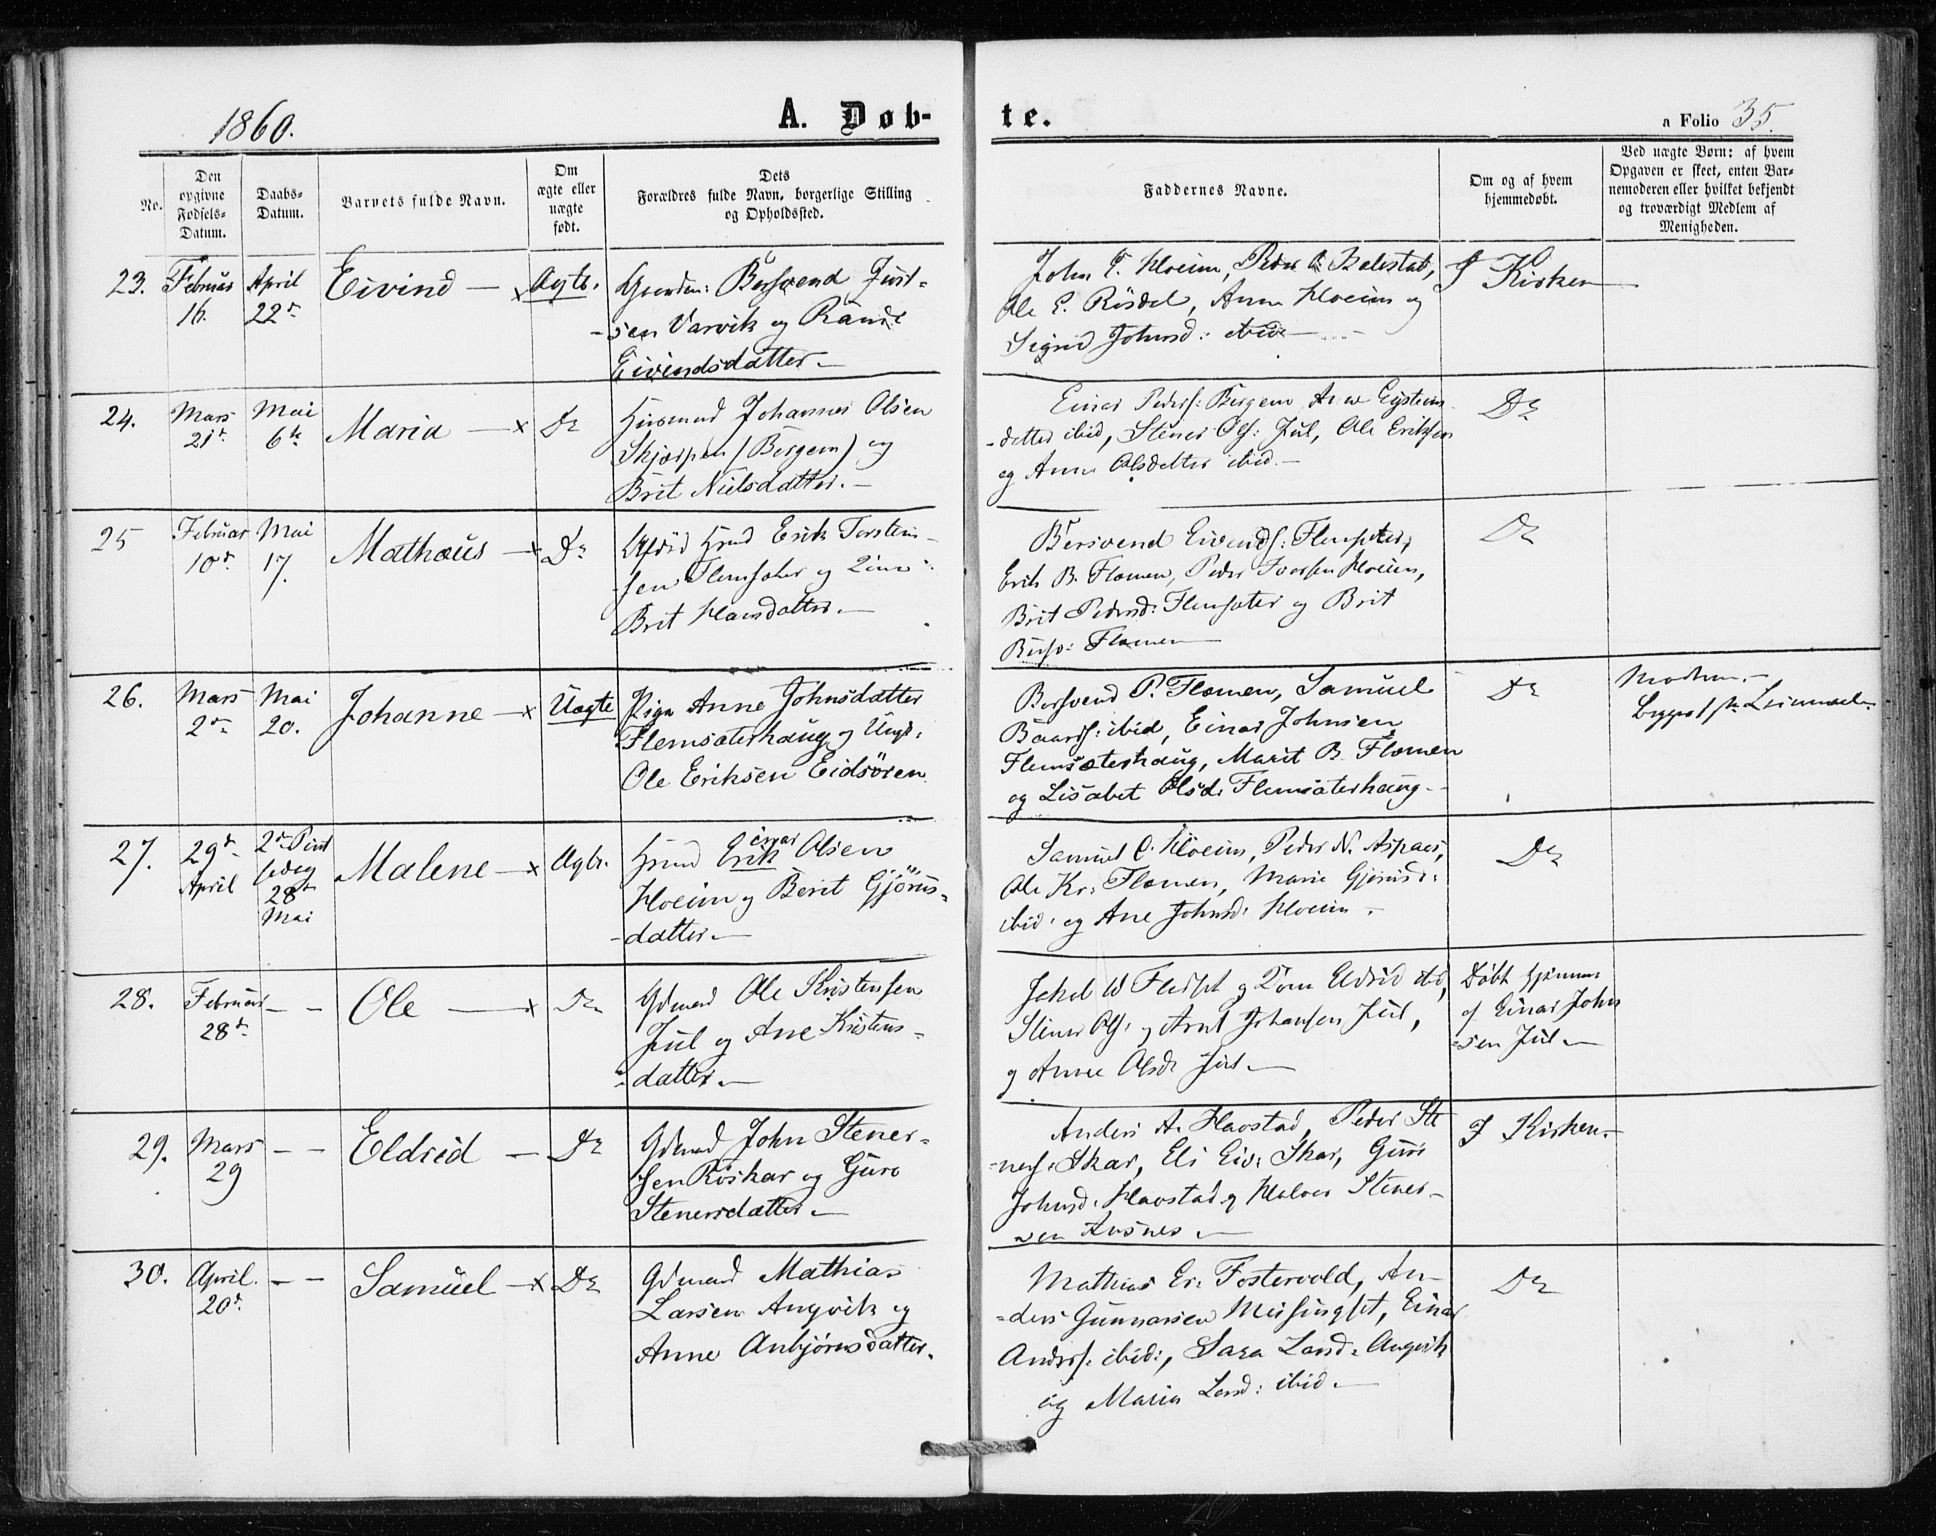 1860.
A. Døb-
te.
a Folio 35.
No.
Den opgivne Fødsels-Datum.
Daabs-Datum.
Barnets fulde Navn.
Om ægte eller uægte født.
Dets Forældres fulde Navn, borgerlige Stilling og Opholdssted.
Faddernes Navne.
Om og af hvem hjemmedøbt.
Ved uægte Børn: af hvem Opgaven er skeet, enten Barnemoderen eller hvilket bekjendt og troværdigt Medlem af Menigheden.
23. Februar 16. April 22de Eivind — x Ægte.
Bersvend Just-
-sen Varvik og Randi
Eivindsdatter.—
John E. Hoeim, Peder
Ole E. Rösdal, Anne Hoeim og
Sigrid Johnsd: ibid—
I Kirken—
24. Mars 21de Mai 6te Maria —x Do
Husmand Johannes Olsen
(Bergem) og
Brit Nielsdatter.—
Einar Peders: Bergem
-datter ibid, Stener Ols: Jul, Ole Eriksen
og Anne Olsdatter ibid.—
Do
25 Februar 10de Mai 17. Mathæus —x Do
Erik Torstein-
sen Flemsæter og
Brit Hansdatter.—
Bersvend Eivends: Flemsæter,
Erik B. Flæmen, Peder Iversen Hoeim,
Brit Pedersd: Flemsæter og Brit
Flæmen—
Do
26. Mars 2de Mai 20. Johanne —x Uægte
Pige Anne Johnsdatter
Flemsæterhaug og Ungk:
Ole Eriksen Eidsören.
Bersvend P. Flæmen, Samuel
Baards: ibid, Einar Johnsen
Flemsæterhaug, Marit B. Flæmen
og Lisabet Olsd: Flemsæterhaug.—
Do
Modren.—
27. 29de April 2den Pint sedag 28de Mai Malene —x Ægte.
einar
Erik Olsen
Hoeim og Berit Gjöräs-
-datter.—
Samuel O. Hoeim, Peder N. Aspaas,
Ole Kr: Flæmen, Marie
ibid: og Ane Johnsd: Hoeim.
Do
28. Februar 28de — — Ole —x Do
Gdmand Ole Kristensen
Jul og Ane Kristens-
-datter.—
Eldrid ibid,
Stener Ols: og Arnt Johansen Jul,
og Anne Olsd: Jul.—
Döbt hjemme
af Einar John
-sen Jul.—
29. Mars 29 — — Eldrid — Do
Gdmand John Stener-
sen Röskar og Guro
Stenersdatter.—
Anders A. Havstad, Peder Ste
-ners: Skar, Eli Eiv: Skar, Guri
Johnsd: Havstad og Halvor Stener-
-sen Ansnes.—
I Kirken.—
30. April 20de — — Samuel —x Do
Gdmand Mathias
Larsen Angvik og
Anne Anbjörnsdatter.
Mathias Er: Fostervold, An-
-ders Gunnarsen Meisingset, Einar
Anders: ibid:, Sara Larsd: Angvik
og Maria Larsd: ibid.—
Do